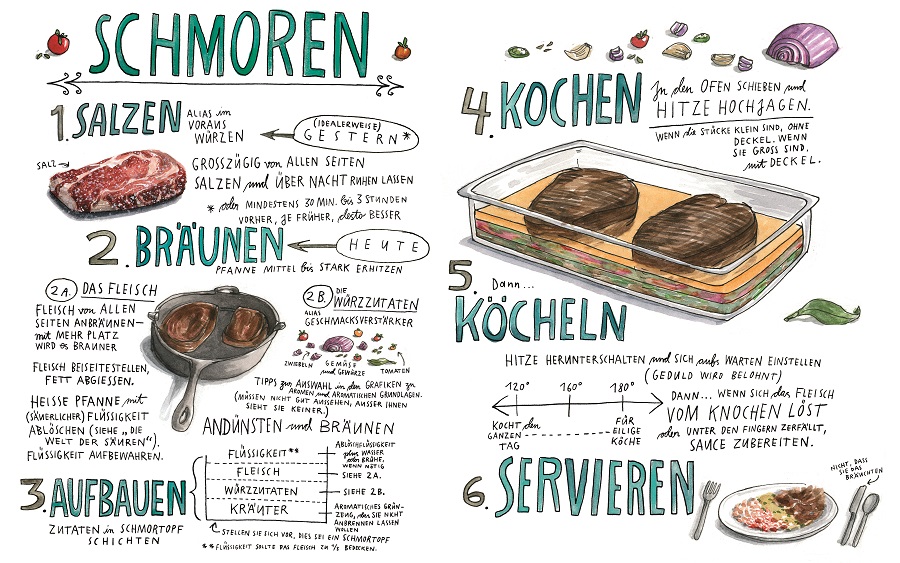 SCHMOREN
1. SALZEN
ALIAS im
VORAUS
WÜRZEN
(IDEALERWEISE)
GESTERN*
SALZ
GROSSZÜGIG von ALLEN SEITEN
SALZEN und ÜBER NACHT RUHEN LASSEN
* oder MINDESTENS 30 MIN. bis 3 STUNDEN
VORHER, JE FRÜHER, desto BESSER
2. BRÄUNEN
HEUTE
PFANNE MITTEL bis STARK ERHITZEN
2A. DAS FLEISCH
FLEISCH von ALLEN
SEITEN ANBRÄUNEN–
mit MEHR PLATZ
WIRD es BRAUNER
FLEISCH BEISEITESTELLEN,
FETT ABGIESSEN.
HEISSE PFANNE mit
(SÄUERLICHER) FLÜSSIGKEIT
ABLÖSCHEN (SIEHE „DIE
WELT DER SÄUREN“).
FLÜSSIGKEIT AUFBEWAHREN.
2B. DIE
WÜRZZUTATEN
ALIAS
GESCHMACKSVERSTÄRKER
ZWIEBELN
GEMÜSE
und GEWÜRZE
TOMATEN
TIPPS zur AUSWAHL in den GRAFIKEN zu
AROMEN und AROMATISCHEN GRUNDLAGEN.
(MÜSSEN NICHT GUT AUSSEHEN, AUSSER IHNEN
SIEHT SIE KEINER.)
ANDÜNSTEN und BRÄUNEN
3. AUFBAUEN
ZUTATEN in SCHMORTOPF
SCHICHTEN
FLÜSSIGKEIT**
ABLÖSCHFLÜSSIGKEIT
plus WASSER
oder BRÜHE,
WENN NÖTIG
FLEISCH
SIEHE 2A.
WÜRZZUTATEN
SIEHE 2B.
KRÄUTER
AROMATISCHES GRÜN-
ZEUG, das SIE NICHT
ANBRENNEN LASSEN
WOLLEN
STELLEN SIE SICH VOR, DIES SEI EIN SCHMORTOPF
**FLÜSSIGKEIT SOLLTE DAS FLEISCH ZU ⅔ BEDECKEN.
4. KOCHEN
In den OFEN SCHIEBEN und
HITZE HOCHJAGEN.
WENN die STÜCKE KLEIN SIND, OHNE
DECKEL. WENN
SIE GROSS SIND,
mit DECKEL.
5. Dann...
KÖCHELN
HITZE HERUNTERSCHALTEN und SICH aufs WARTEN EINSTELLEN
(GEDULD WIRD BELOHNT)
120° 160° 180°
KOCHT den
GANZEN
TAG
FÜR
EILIGE
KÖCHE
DANN... WENN SICH das FLEISCH
VOM KNOCHEN LÖST
oder UNTER DEN FINGERN ZERFÄLLT,
SAUCE ZUBEREITEN.
6. SERVIEREN
NICHT, DASS
SIE DAS
BRÄUCHTEN